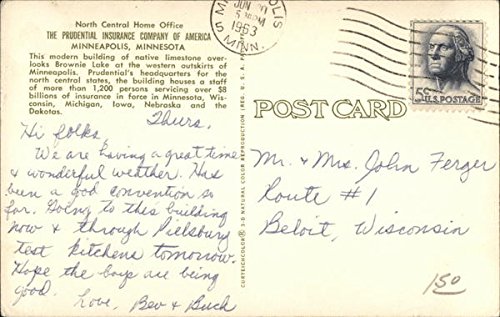 North Central Home Office
THE PRUDENTIAL INSURANCE COMPANY OF AMERICA
MINNEAPOLIS, MINNESOTA
This modern building of native limestone over-
looks Brownie Lake at the western outskirts of
Minneapolis. Prudential's headquarters for the
north central states, the building houses a staff
of more than 1,200 persons servicing over $8
billions of insurance in force in Minnesota, Wis-
consin, Michigan, Iowa, Nebraska and the
Dakotas.
Thurs.
Hi folks,
We are having a great time
& wonderful weather. Has
been a good convention so
far. Going to this building
now & through Pillsburg
test kitchens tomorrow.
Hope the boys are being
good.
Love, Bev & Buck
CURTEICHCOLOR® 3-D NATURAL COLOR REPRODUCTION (REG. U.S.A. P
POST CARD
JUN
PM
1963
MINN.
5¢
U.S. POSTAGE
Mr. & Mrs. John Ferger
Route #1
Beloit, Wisconsin
150